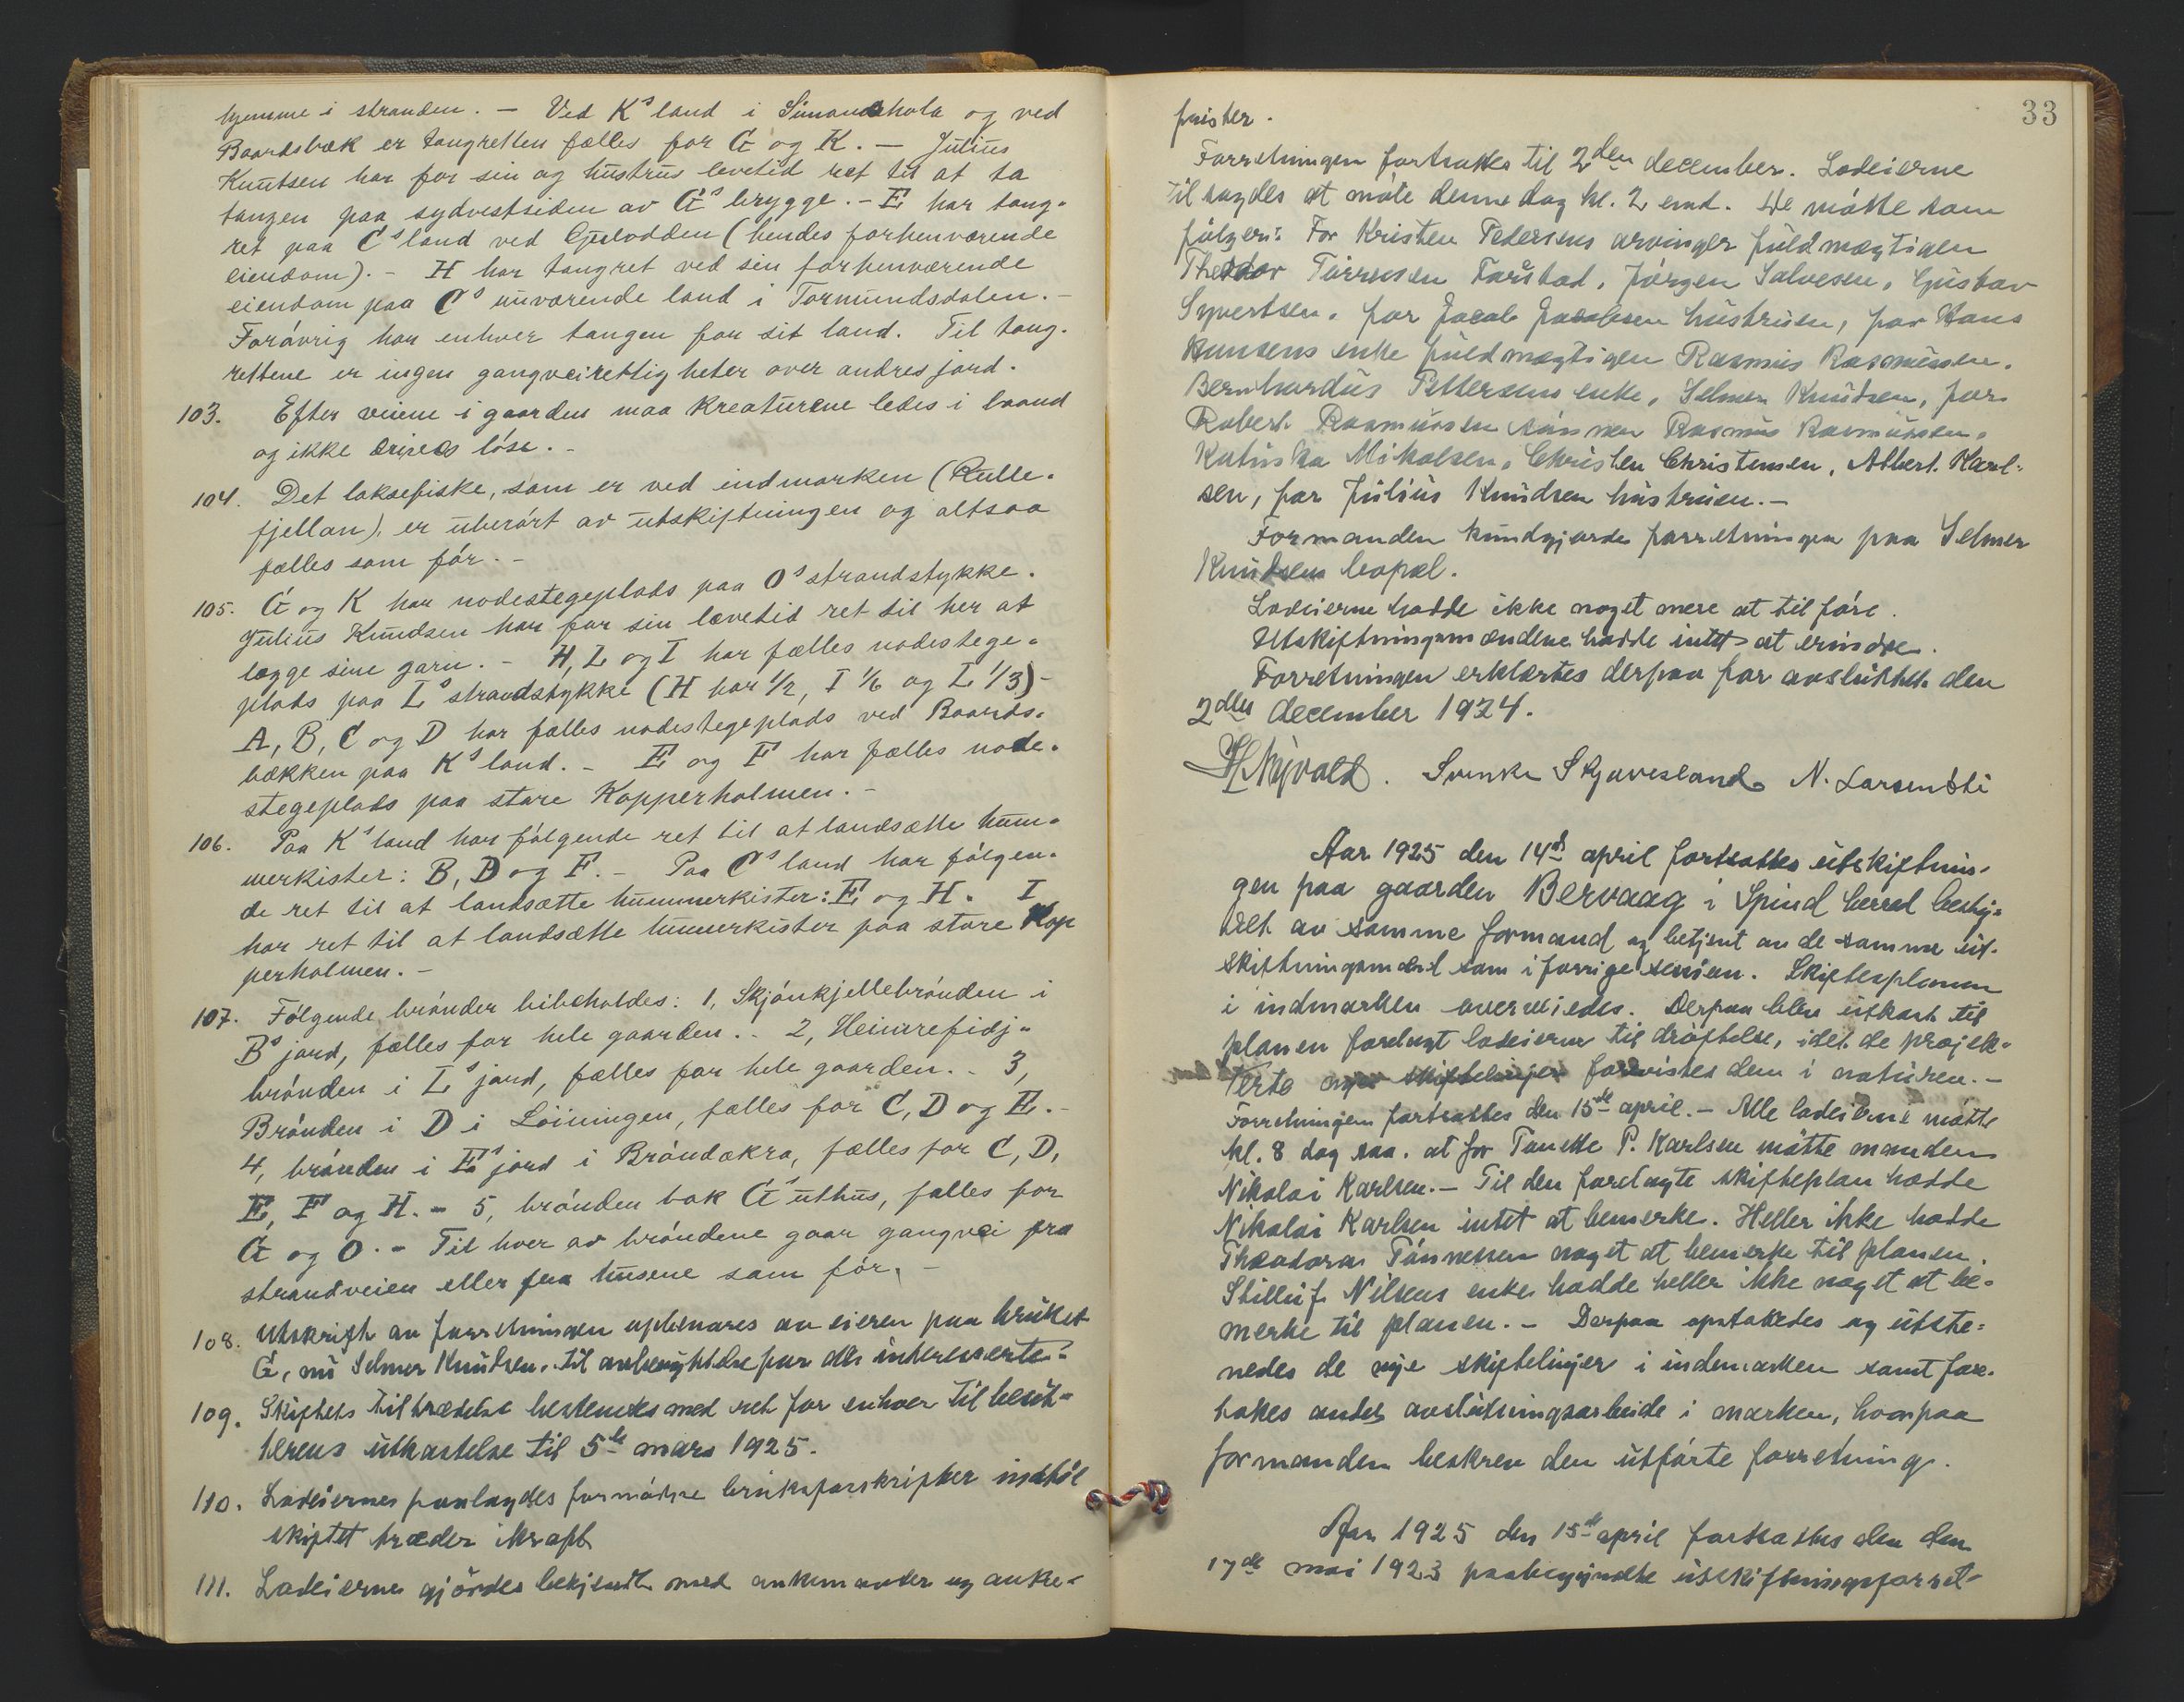 hjemme i stranden. – Ved K's land i Simonshola og ved
Baardsbæk er tangretten fælles for G og K. – Julius
Knutsen har for sin og hustrus levetid ret til at ta
tangen paa sydvestsiden av G's brygge. – E har tang-
ret paa C's land ved Gjusodden (hendes forhenværende
eiendom). – H har tangret ved sin forhenværende
eiendom paa C's nuværende land i Tormundsdalen. –
Forøvrig har enhver tangen for sit land. Til tang-
rettene er ingen gangveirettigheter over andres jord.
103. Efter veiene i gaarden maa kreaturene ledes i baand
og ikke drives løse. –
104. Det laksefiske, som er ved indmarken (Rulle-
fjellan), er uberørt av utskiftningen og altsaa
fælles som før. –
105. G og K har notstegeplads paa O's strandstykke.
Julius Knudsen har for sin levetid ret til her at
lægge sine garn. – H, L og I har fælles nodestege-
plads paa L's strandstykke (H har 1/2, I 1/6 og L 1/3) –
A, B, C og D har fælles nodestegeplads ved Baards-
bækken paa K's land. – E og F har fælles node-
stegeplads paa store Kopperholmen. –
106. Paa K's land har følgende ret til at landsætte hum-
merkister: B, D og F. – Paa C's land har følgen-
de ret til at landsætte hummerkister: E og H. I
har ret til at landsætte hummerkister paa store Kop
perholmen. –
107. Følgende brønder bibeholdes: 1, Skjønkjellebrønden i
B's jord, fælles for hele gaarden. – 2, Heimrefidj-
brønden i L's jord, fælles for hele gaarden. – 3,
Brønden i D i Löiningen, fælles for C, D og E. –
4, brønden i E's jord i Brøndækra, fælles for C, D,
E, F og H. – 5, brønden bak G's uthus, fælles for
G og O. – Til hver av brøndene gaar gangvei fra
strandveien eller fra husene som før. –
108. Utskrift av forretningen opbevares av eieren paa bruket
G, nu Selmer Knudsen, til avbenyttelse for alle interesserte.
109. Skiftets tiltrædelse bestemtes med ret for enhver til besit-
terens utkastelse til 5te mars 1925.
110. Lodeiernes paalagdes fornødne bruksforskrifter indtil
skiftet træder ikraft
111. Lodeierne gjördes bekjendt med ankemaaten og anke-
33
frister.
Forretningen fortsattes til 2den december. Lodeierne
tilsagdes at møte denne dag kl. 2 emd. De møtte som
følger: For Kristen Pedersens arvinger fuldmægtigen
Theodor Tørresen Farstad, Jørgen Salvesen, Gustav
Syvertsen, for Jacob Jacobsen hustruen, for Hans
Hansens enke fuldmægtigen Rasmus Rasmussen,
Bernhardus Pettersens enke, Selmer Knudsen, for
Robert Rasmussen sønnen Rasmus Rasmussen,
Katinka Mikalsen, Christen Christensen, Albert Karl-
sen, for Julius Knudsen hustruen. –
Formanden kundgjorde forretningen paa Selmer
Knudsens bopæl.
Lodeierne hadde ikke noget mere at tilføre.
Utskiftningsmændene hadde intet at erindre.
Forretningen erklærtes derpaa for avsluttet den
2den december 1924.
H. Myvold. Svenke Skjavesland N. Larsen Sti
Aar 1925 den 14de april fortsattes utskiftnin-
gen paa gaarden Bervaag i Spind herred besty-
ret av samme formand og betjent av de samme ut-
skiftningsmænd som i forrige sesion. Skiftesplanen
i indmarken overveiedes. Derpaa blev utkast til
planen forelagt lodeierne til drøftelse, idet de projek-
terte nye skiftelinjer forevistes dem i naturen. –
Forretningen fortsattes den 15de april. – Alle lodeierne møtte
kl. 8 dog saa. at for Tanette P. Karlsen møtte manden
Nikolai Karlsen. – Til den forelagte skifteplan hadde
Nikolai Karlsen intet at bemerke. Heller ikke hadde
Theodora Tønnessen noget at bemerke til planen.
Stilluf Nilsens enke hadde heller ikke noget at be-
merke til planen. – Derpaa opstakedes og utste-
nedes de nye skiftelinjer i indmarken samt fore-
tokes andet avslutningsarbeide i marken, hvorpaa
formanden beskrev den utførte forretning.
Aar 1925 den 15de april fortsattes den den
17de mai 1923 paabegyndte utskiftningsforret-